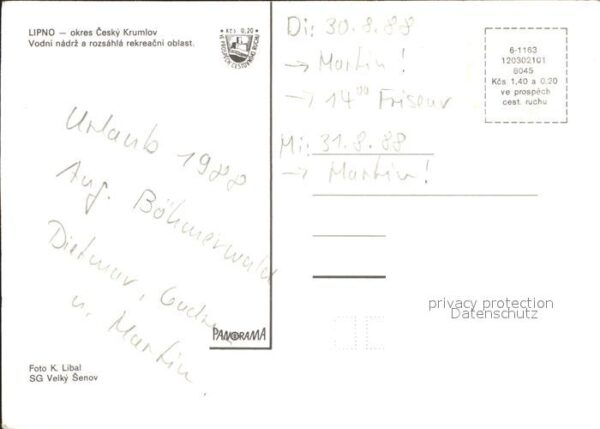 LIPNO — okres Český Krumlov
Vodní nádrž a rozsáhlá rekreační oblast.
Kčs 0,20
VE PROSPĚCH CESTOVNÍHO RUCHU
Urlaub 1988
Aug. Böhmerwald
Dietmar, Gudrun
u. Martin.
PANORAMA
Foto K. Libal
SG Velký Šenov
Di: 30.8.88
→ Martin!
→ 14⁰⁰ Friseur
Mi: 31.8.88
→ Martin!
6-1163
120302101
8045
Kčs 1,40 a 0,20
ve prospěch
cest. ruchu
privacy protection
Datenschutz